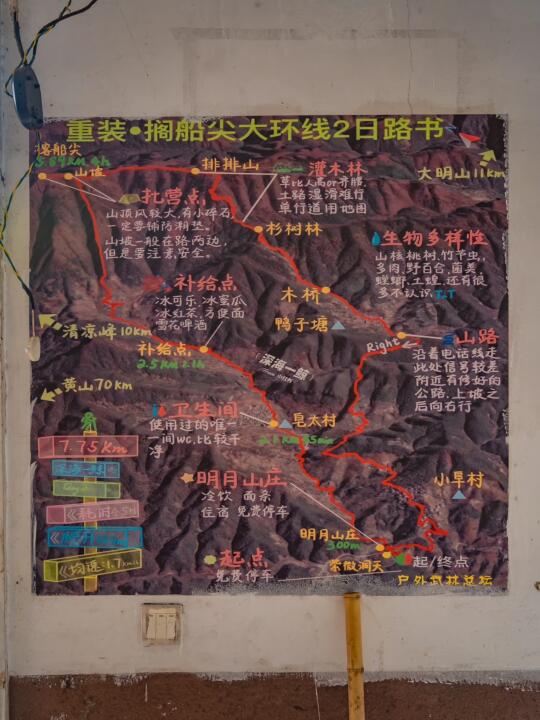 重装•搁船尖大环线2日路书
搁船尖
5.89KM 4h
山坡
排排山
灌木林
草比人高or齐腰,
土路湿滑难行
单行道用地图
大明山11km
扎营点
山顶风较大,有小碎石,
一定要铺防潮垫。
山坡一般在路两边,
但是要注意安全。
杉树林
生物多样性
山核桃树,竹节虫,
多肉,野百合,菌类,
螳螂,土蝗,还有很
多不认识,T.T
补给点
冰可乐,冰蜜瓜
冰红茶,方便面
雪花啤酒
木桥
鸭子塘
清凉峰10km
Right
山路
沿着电话线走
此处信号较差
附近有修好的
公路,上坡之
后向右行
补给点
2.5KM 2.1h
(深海一鲸)
黄山70km
卫生间
使用过的唯一
一间WC,比较干
净
皂太村
7.75Km
深海一鲸
小旱村
明月山庄
冷饮 面杀
住宿 免费停车
明月山庄
300m
起点
免费停车
紫微洞天
起/终点
户外武林总坛